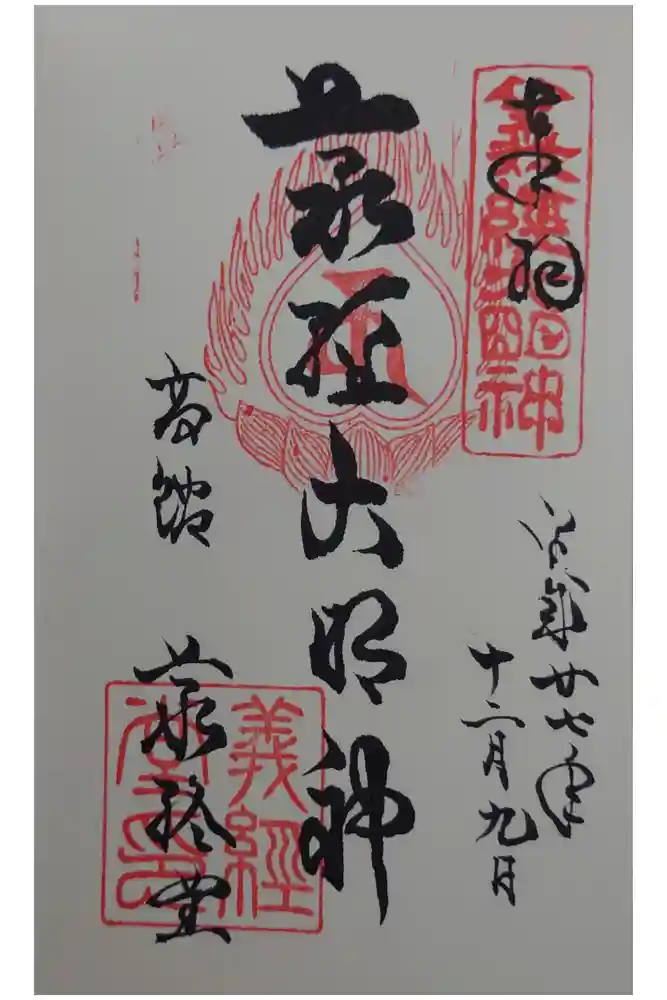 奉拝
平成廿七年
十二月九日
義経大明神
高館
義経堂
義經
堂印